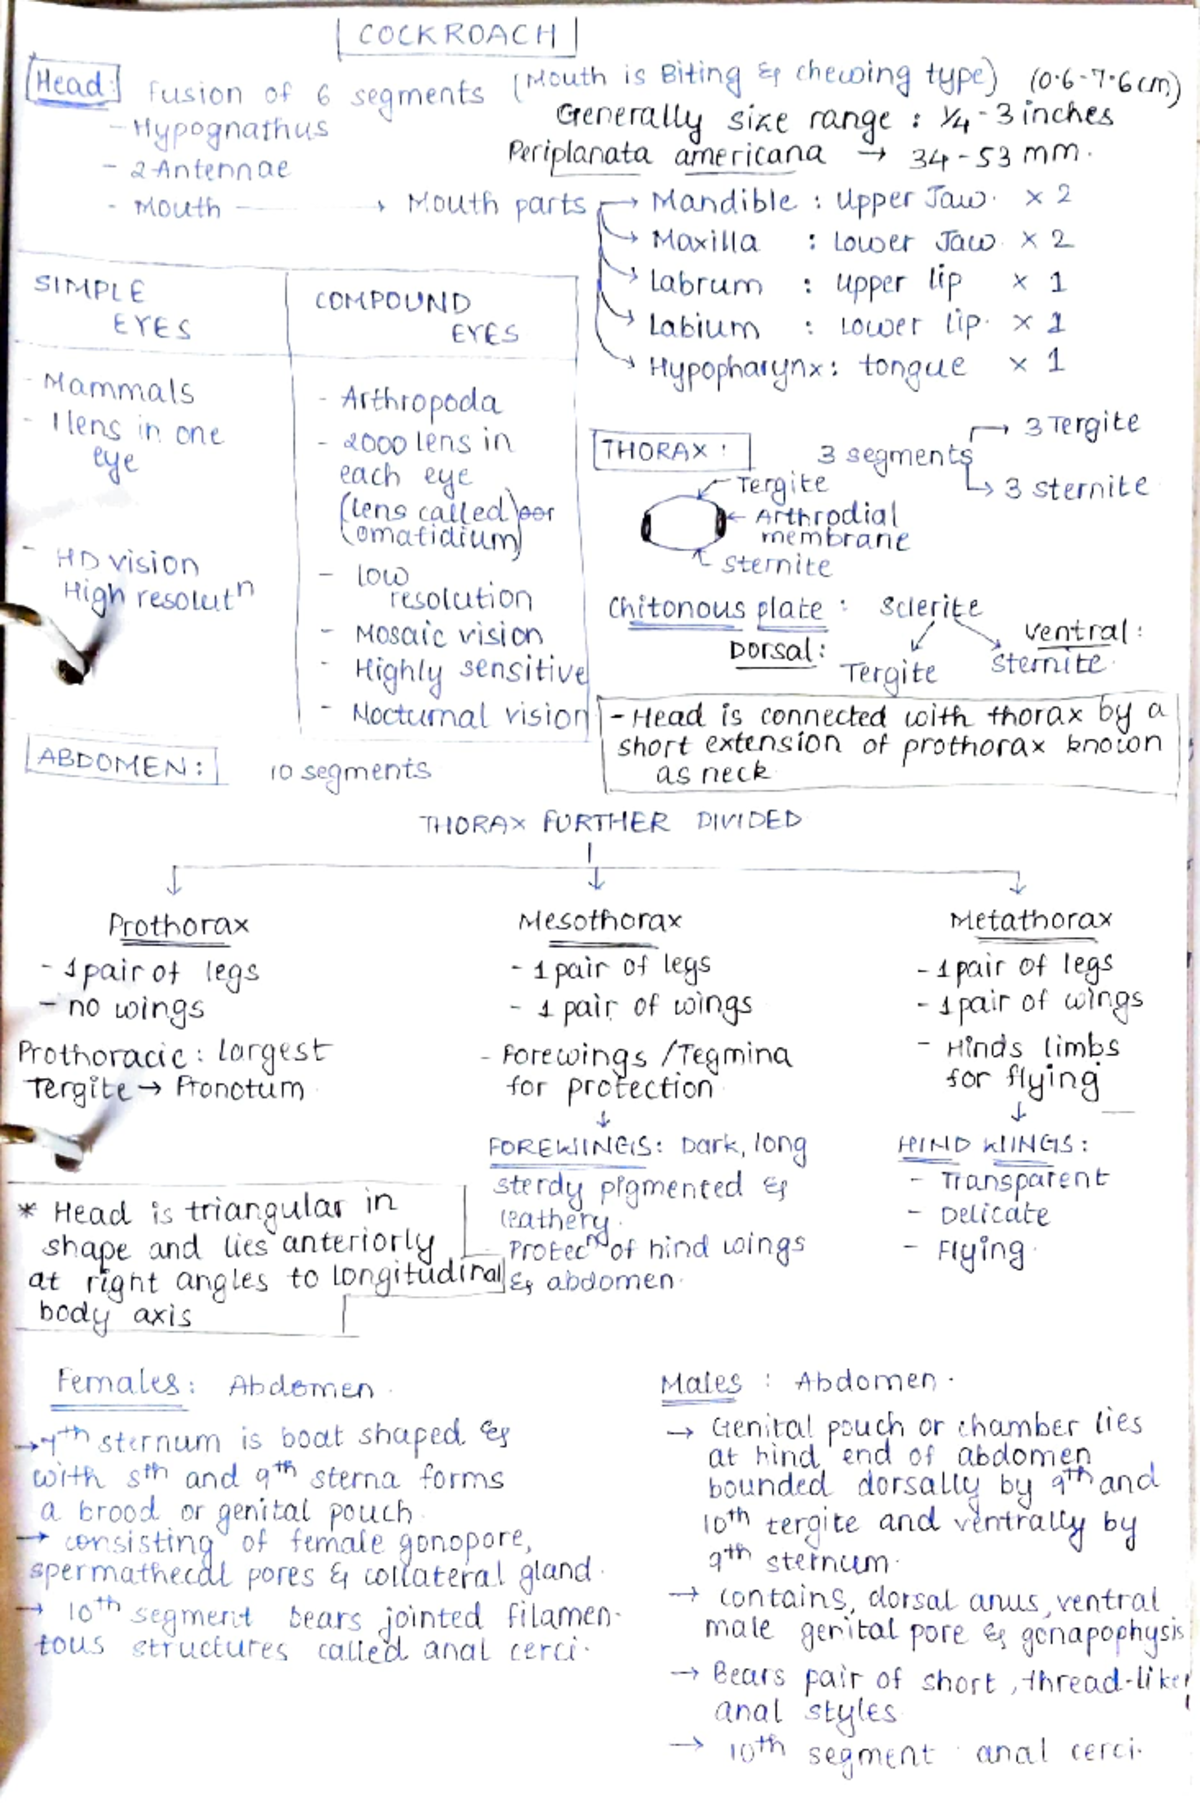 COCKROACH
Head: fusion of 6 segments (Mouth is Biting & chewing type) (0.6-7.6cm)
- Hypognathus
Generally size range : 1/4 - 3 inches
- 2 Antennae
Periplanata americana → 34-53 mm.
- Mouth → Mouth parts → Mandible : Upper Jaw. x 2
→ Maxilla : Lower Jaw x 2
→ Labrum : Upper lip x 1
→ Labium : Lower lip. x 1
→ Hypopharynx: tongue x 1
SIMPLE
EYES
- Mammals
- 1 lens in one
eye
- HD vision
High resolutⁿ
COMPOUND
EYES
- Arthropoda
- 2000 lens in
each eye
(lens called) oor
(omatidium)
- low
resolution
- Mosaic vision
- Highly sensitive
- Nocturnal vision
THORAX : 3 segments → 3 Tergite
→ 3 sternite
Tergite
Arthrodial
membrane
Sternite
Chitonous plate : Sclerite
Dorsal: Tergite
Ventral:
Sternite.
- Head is connected with thorax by a
short extension of prothorax known
as neck
ABDOMEN: 10 segments
THORAX FURTHER DIVIDED
Prothorax
- 1 pair of legs
- no wings
Prothoracic : largest
Tergite → Pronotum
Mesothorax
- 1 pair of legs
- 1 pair of wings
- Forewings / Tegmina
for protection
↓
FOREWINGS: Dark, long
sterdy pigmented &
leathery.
Protecⁿ of hind wings
& abdomen.
Metathorax
- 1 pair of legs
- 1 pair of wings
- Hinds limbs
for flying
↓
HIND WINGS:
- Transparent
- Delicate
- Flying.
* Head is triangular in
shape and lies anteriorly
at right angles to longitudinal
body axis
Females: Abdomen.
→ 7th sternum is boat shaped &
with 8th and 9th sterna forms
a brood or genital pouch.
→ consisting of female gonopore,
spermathecal pores & collateral gland.
→ 10th segment bears jointed filamen-
tous structures called anal cerci.
Males : Abdomen.
→ Genital pouch or chamber lies
at hind end of abdomen
bounded dorsally by 9th and
10th tergite and ventrally by
9th sternum.
→ contains, dorsal anus, ventral
male genital pore & gonapophysis
→ Bears pair of short, thread-like
anal styles
→ 10th segment anal cerci.